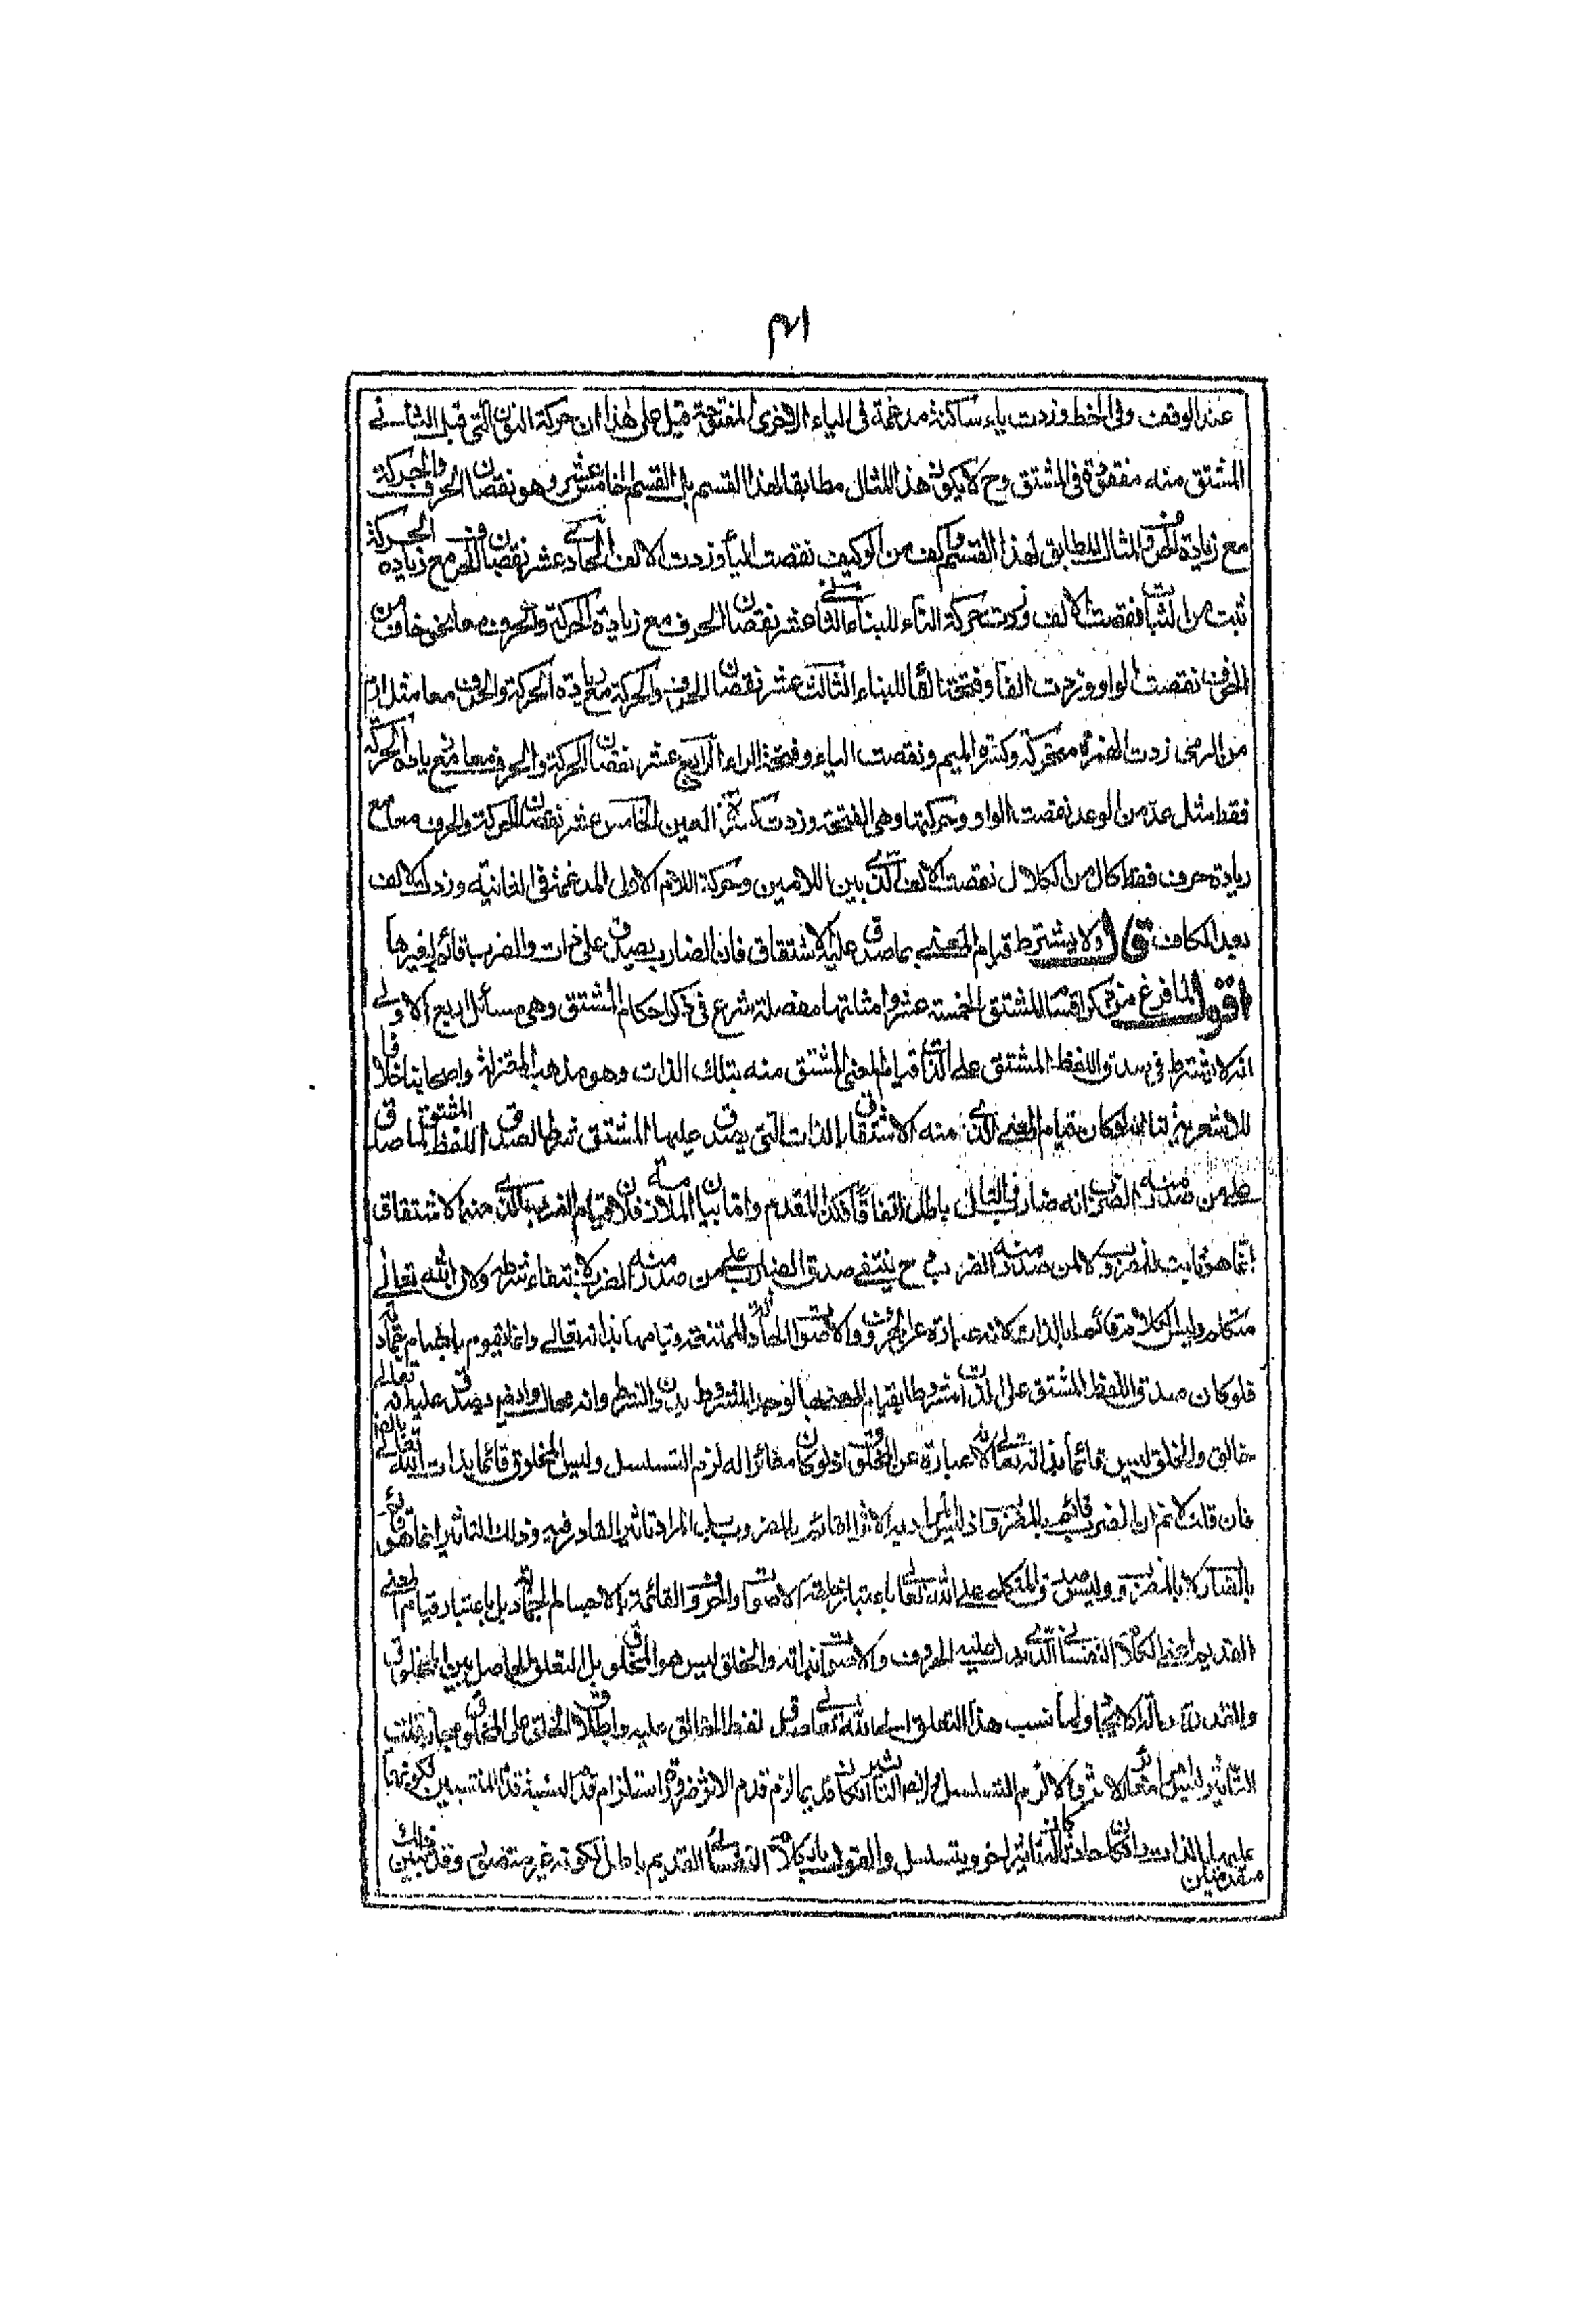 ٣١
عند الوقف وفى الخط وزدت ياء ساكنة مدغمة فى الياء الاخرى المفتوحة قيل على هذا ان حركة النون التى قبل التاء فى
المشتق منه مفقودة فى المشتق وح لا يكون هذا المثال مطابقا لهذا القسم بل القسم الخامس عشر وهو نقصان الحرف والحركة
مع زيادة الحرف والمثال المطابق لهذا القسم كف من الوكيف نقصت الياء وزدت الالف الحادى عشر نقصان الحرف مع زيادة الحركة
ثبت من الثبات نقصت الالف وزدت حركة التاء للبناء الثانى عشر نقصان الحرف مع زيادة الحركة والحرف معا نحو خاف من
الخوف نقصت الواو وزدت الفا وفتحة الفاء للبناء الثالث عشر نقصان الحرف والحركة مع زيادة الحركة والحرف معا مثل ارم
من الرمى زدت الهمزة متحركة وكسرة الميم ونقصت الياء وفتحة الراء الرابع عشر نقصان الحركة والحرف معا مع زيادة الحركة
فقط مثل عد من الوعد نقصت الواو وحركتها وهى الفتحة وزدت كسرة العين الخامس عشر نقصان الحركة والحرف معا مع
زيادة حرف فقط كال من الكلال نقصت الالف التى بين اللامين وحركة اللام الاولى المدغمة فى الثانية وزدت الالف
بعد الكاف قال ولا يشترط قيام المعنى بما صدق عليه الاشتقاق فان الضارب يصدق على ذات والضرب قائم بغيرها
اقول لما فرغ من ذكر اقسام المشتق الخمسة عشر وامثلتها مفصلة شرع فى ذكر احكام المشتق وهى مسائل اربع الاولى
انه لا يشترط فى صدق اللفظ المشتق على الذات قيام المعنى المشتق منه بتلك الذات وهو مذهب المعتزلة واصحابنا خلافا
للاشعرية لنا انه لو كان قيام المعنى الذى منه الاشتقاق بالذات التى يصدق عليها المشتق شرطا لصدق اللفظ المشتق لما صدق
على من صدر منه الضرب انه ضارب والتالى باطل اتفاقا فكذا المقدم واما بيان الملازمة فلان قيام الضرب الذى منه الاشتقاق
انما هو ثابت للمضروب لا لمن صدر منه الضرب فح ينتفى صدق الضارب على من صدر منه الضرب لانتفاء شرطه ولان الله تعالى
متكلم وليس الكلام قائما بالذات لانه عبارة عن الحروف والاصوات الحادثة الممتنعة قيامها بذاته تعالى وانما يقوم باجسام جمادية
فلو كان صدق اللفظ المشتق على الذات مشروطا بقيام المعنى بها لوجد المشروط بدون الشرط وانه محال وايضا يصدق عليه انه تعالى
خالق والخلق ليس قائما بذاته تعالى لانه عبارة عن المخلوق اذ لو كان مغائرا له لزم التسلسل وليس المخلوق قائما بذات الله تعالى
فان قلت لا نم ان الضرب قائم بالمضروب اذ ليس المراد به الاثر القائم بالمضروب بل المراد تاثير القادر فيه وذلك التاثير انما هو قائم
بالضارب لا بالمضروب وليس صدق المتكلم على الله تعالى باعتبار خلقه الاصوات والحروف القائمة بالاجسام الجمادية بل باعتبار قيام المعنى
القديم اعنى الكلام النفسانى الذى يدل عليه الحروف والاصوات بذاته والخلق ليس هو المخلوق بل التعلق الحاصل بين المخلوق
والقدرة حالة الايجاد ولما نسب هذا التعلق الى الله تعالى صدق لفظ الخالق عليه واطلاق الخلق على المخلوق مجاز قلت
التاثير ليس امرا مغائرا للاثر والا لزم التسلسل وايضا التاثير ان كان قديما لزم قدم الاثر ضرورة استلزام قدم النسبة قدم المنتسبين لكونهما
متقدمين عليها بالذات وان كان حادثا كان له تاثير اخر ويتسلسل والقول بان كلام النفسانى القديم باطل لكونه غير متصور وقد تبين ذلك